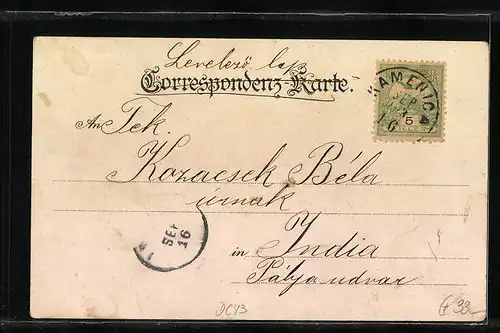 Levelező lap
Correspondenz-Karte.
KAMENICA
SEP
16
5
An Tek.
Kozacsek Béla
úrnak
SEP
16
in India
Pálya udvar
DC43